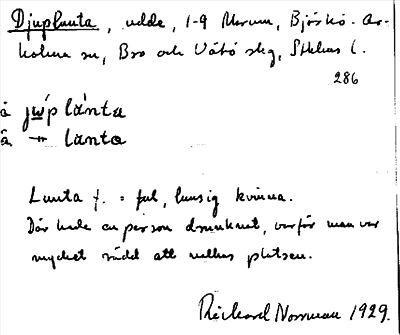 Djuplunta, udde, 1-9 Marum, Björkö-Ar-
holma sn, Bro och Vätö skg, Sthlms l.
286
å jωp lánta
å̂ -"- lanta
Lunta f. = ful, lunsig kvinna.
Där hade en person drunknat, varför man var
mycket rädd att nalkas platsen.
Rickard Norrman 1929.